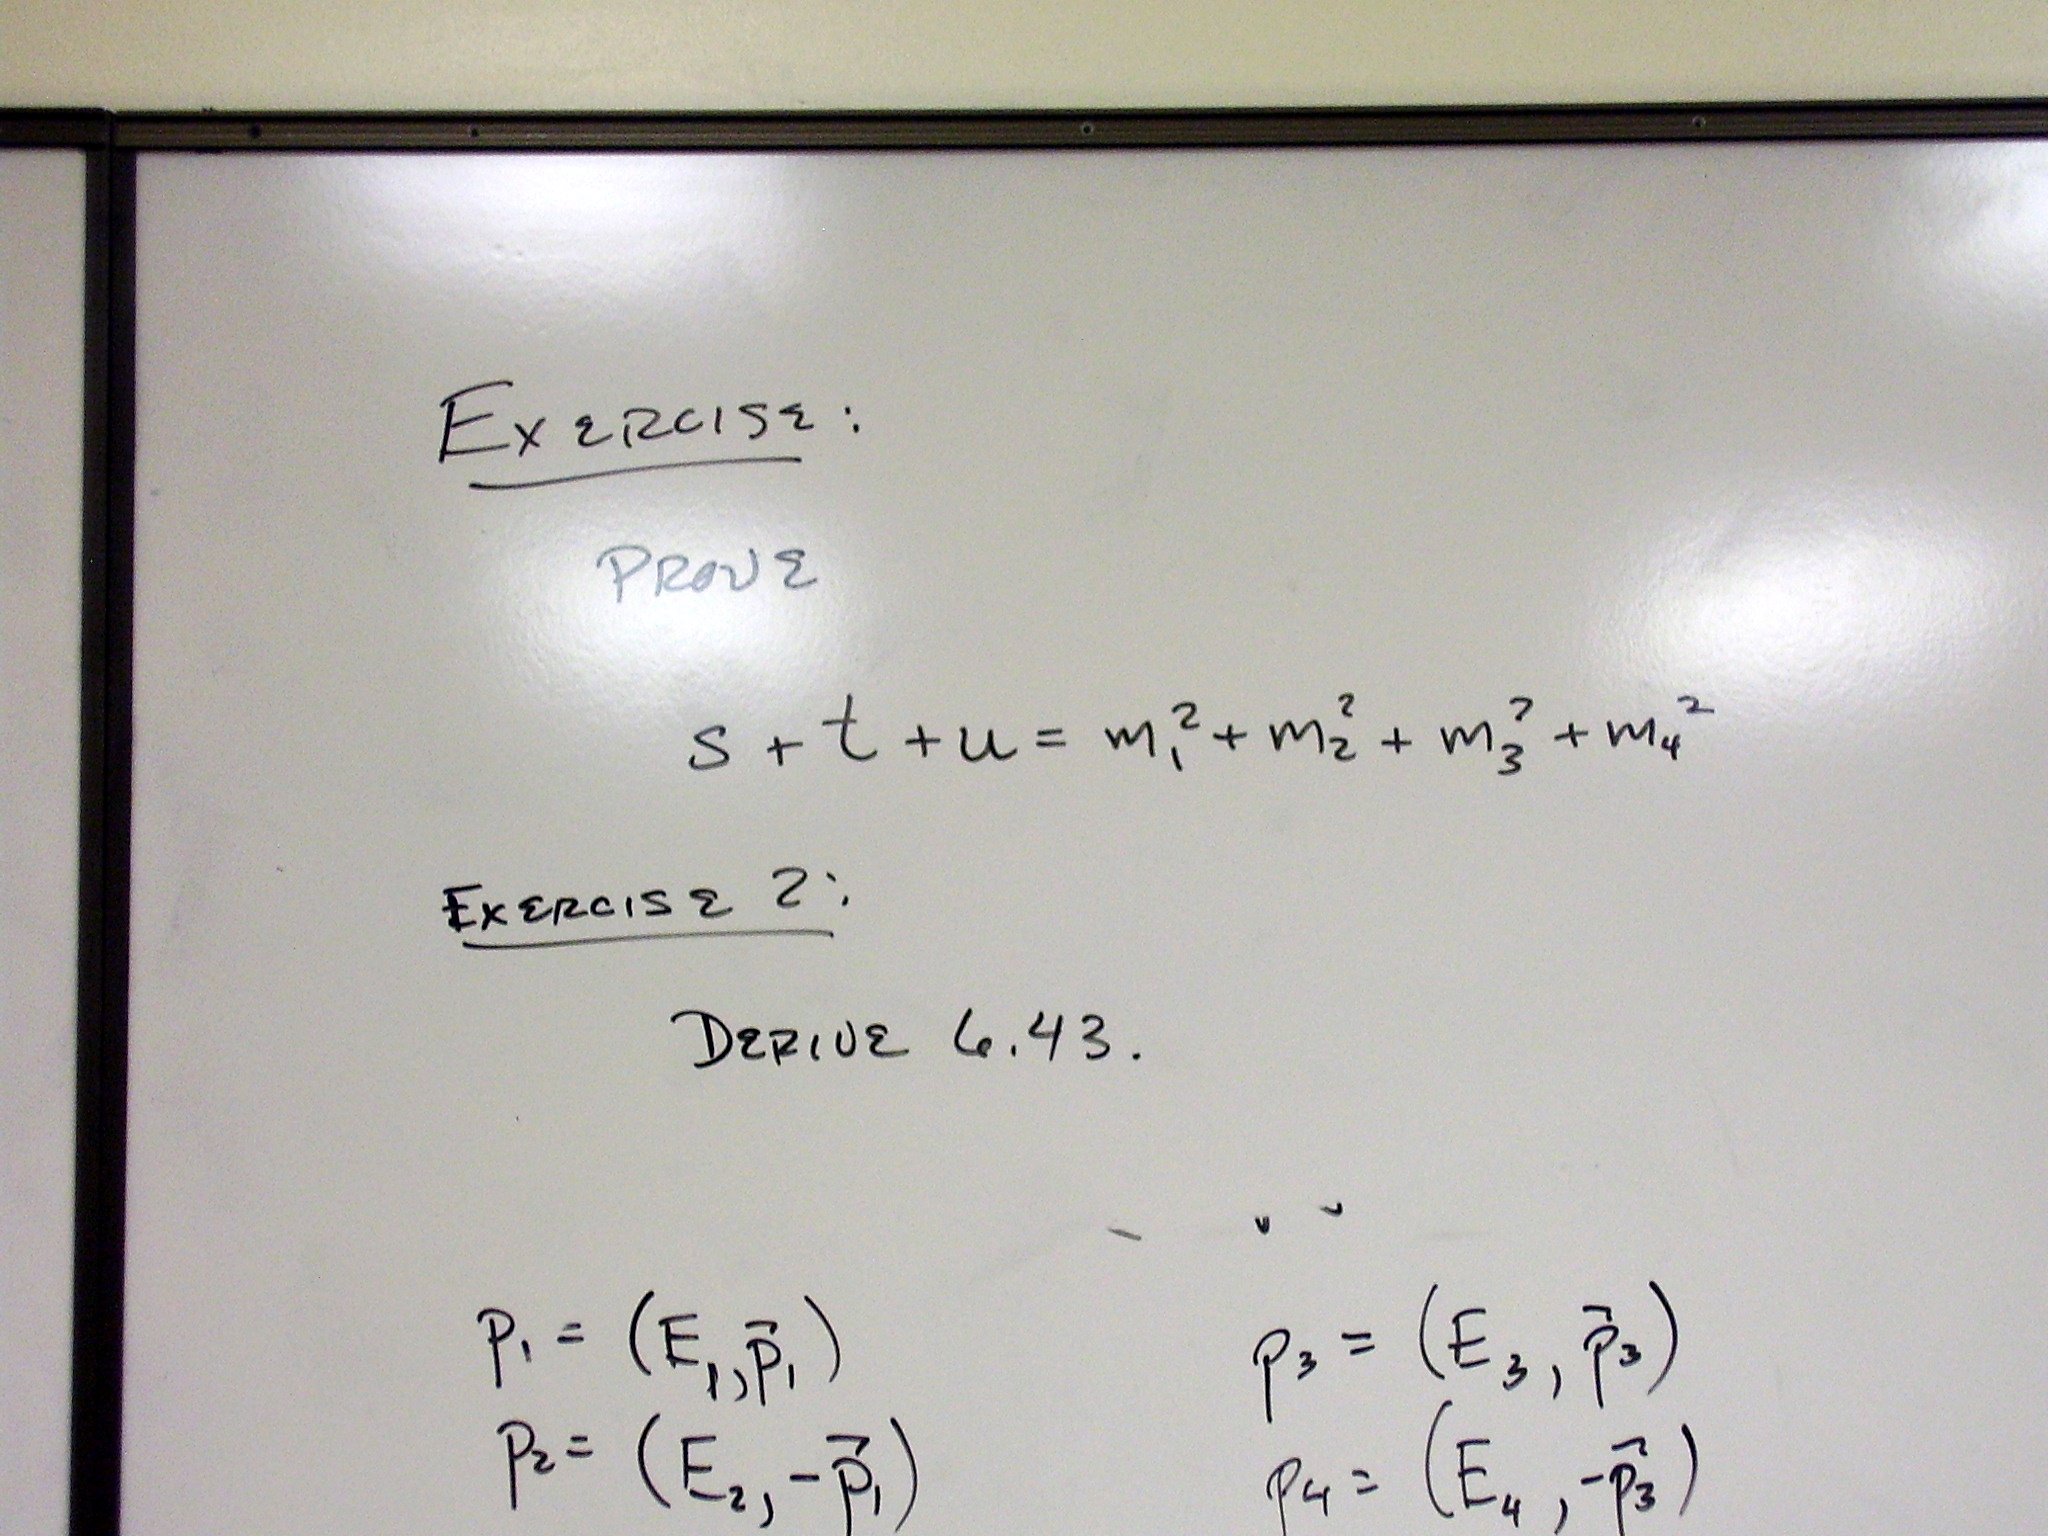 EXERCISE:
PROVE
s + t + u = m₁² + m₂² + m₃² + m₄²
EXERCISE 2:
DERIVE 6.43.
p₁ = (E₁, p⃗₁)
p₃ = (E₃, p⃗₃)
p₂ = (E₂, -p⃗₁)
p₄ = (E₄, -p⃗₃)